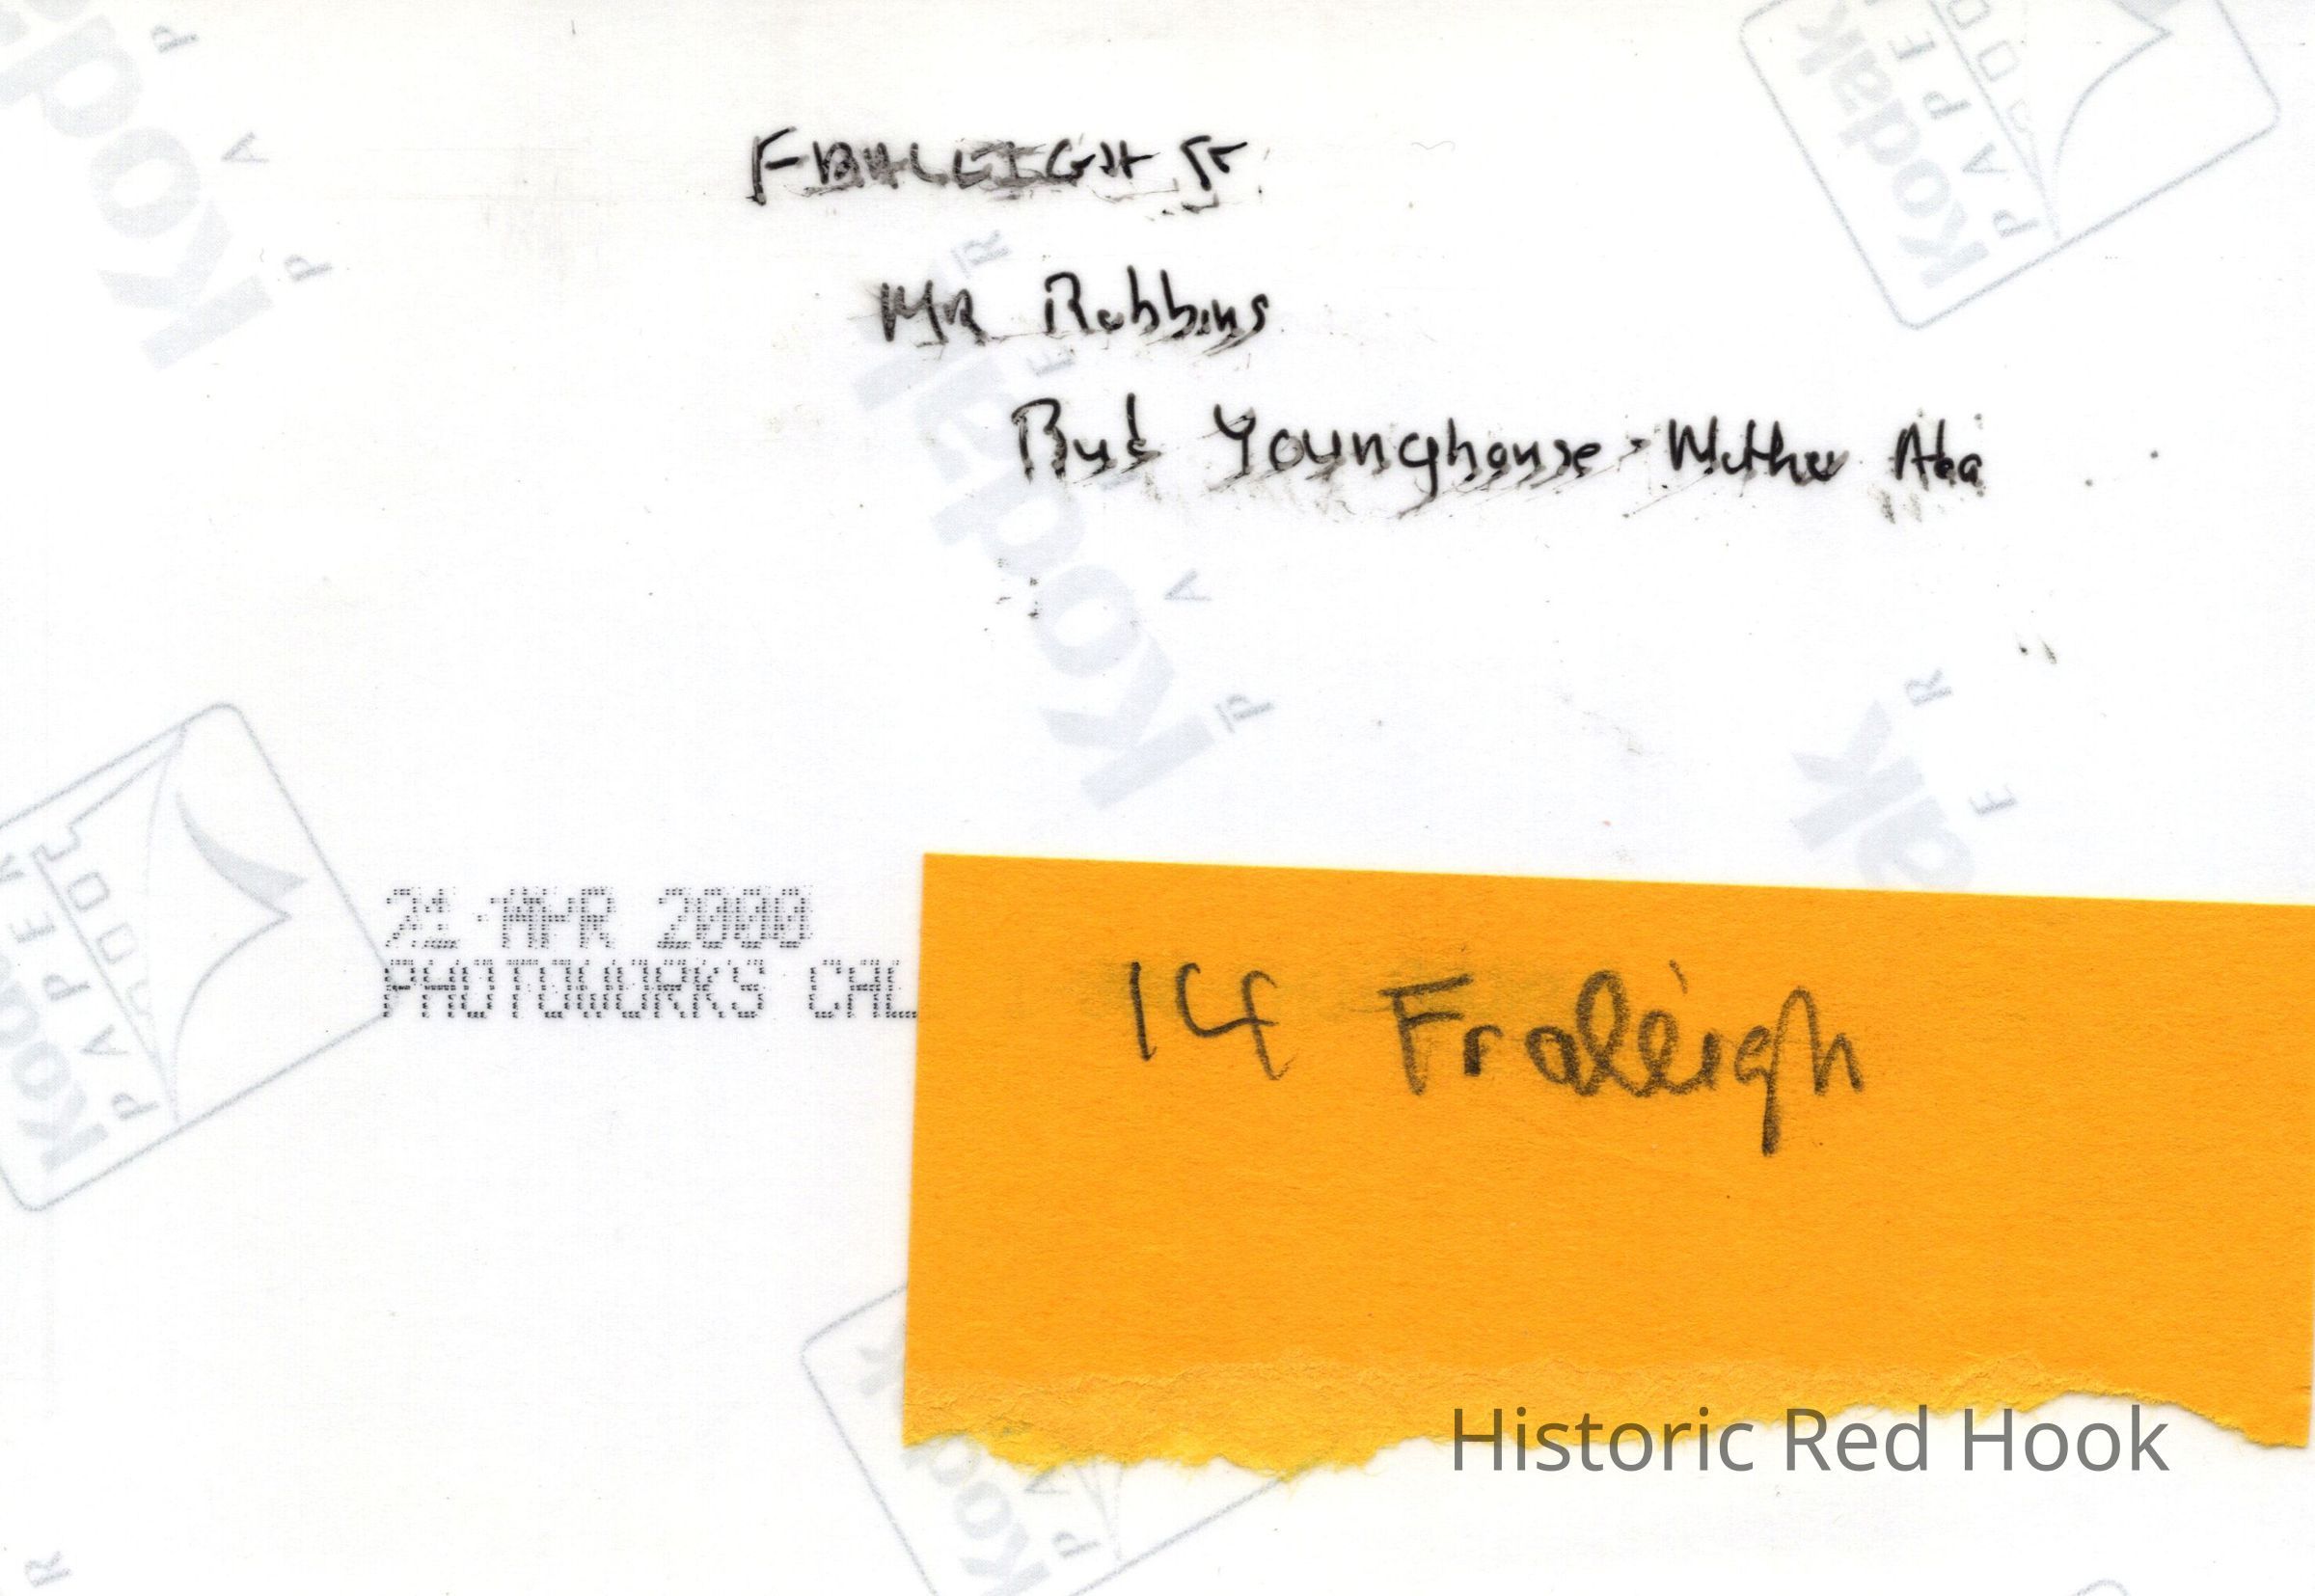 FRALEIGH ST
MR Robbins
Bud Younghouse - Mother Ada
21 APR 2000
PHOTOWORKS CHL
14 Fraleigh
Historic Red Hook
Kodak
PAPER